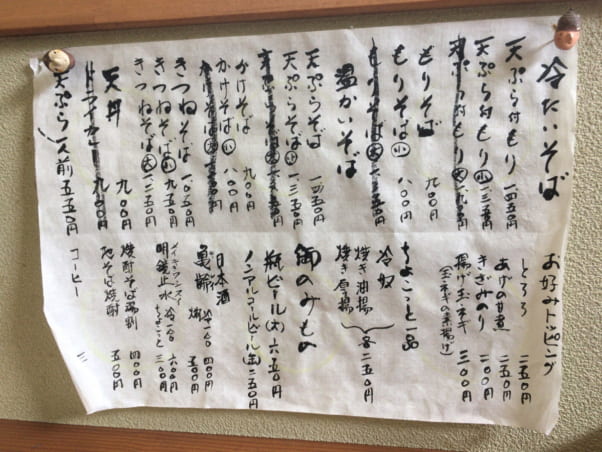 冷たいそば
天ぷら付もり 一四五〇円
天ぷら付もり小 一三五〇円
もりそば 九〇〇円
もりそば小 八〇〇円
温かいそば
天ぷらそば 一四五〇円
天ぷらそば小 一三五〇円
かけそば 九〇〇円
かけそば小 八〇〇円
きつねそば 一〇五〇円
きつねそば小 九五〇円
きつねそば大 一二五〇円
天丼 九〇〇円
ドライカレー 九〇〇円
天ぷら一人前 五五〇円
お好みトッピング
とろろ 二五〇円
あげの甘煮 二五〇円
きざみのり 一〇〇円
揚げ玉ネギ 三〇〇円
(玉ネギの素揚げ)
ちょこっと一品
冷奴
焼き油揚
焼き厚揚
各二五〇円
御のみもの
瓶ビール(大) 六五〇円
ノンアルコールビール(缶) 二五〇円
日本酒
亀齢
明鏡止水
焼酎そば湯割 四〇〇円
そば焼酎 五〇〇円
コーヒー